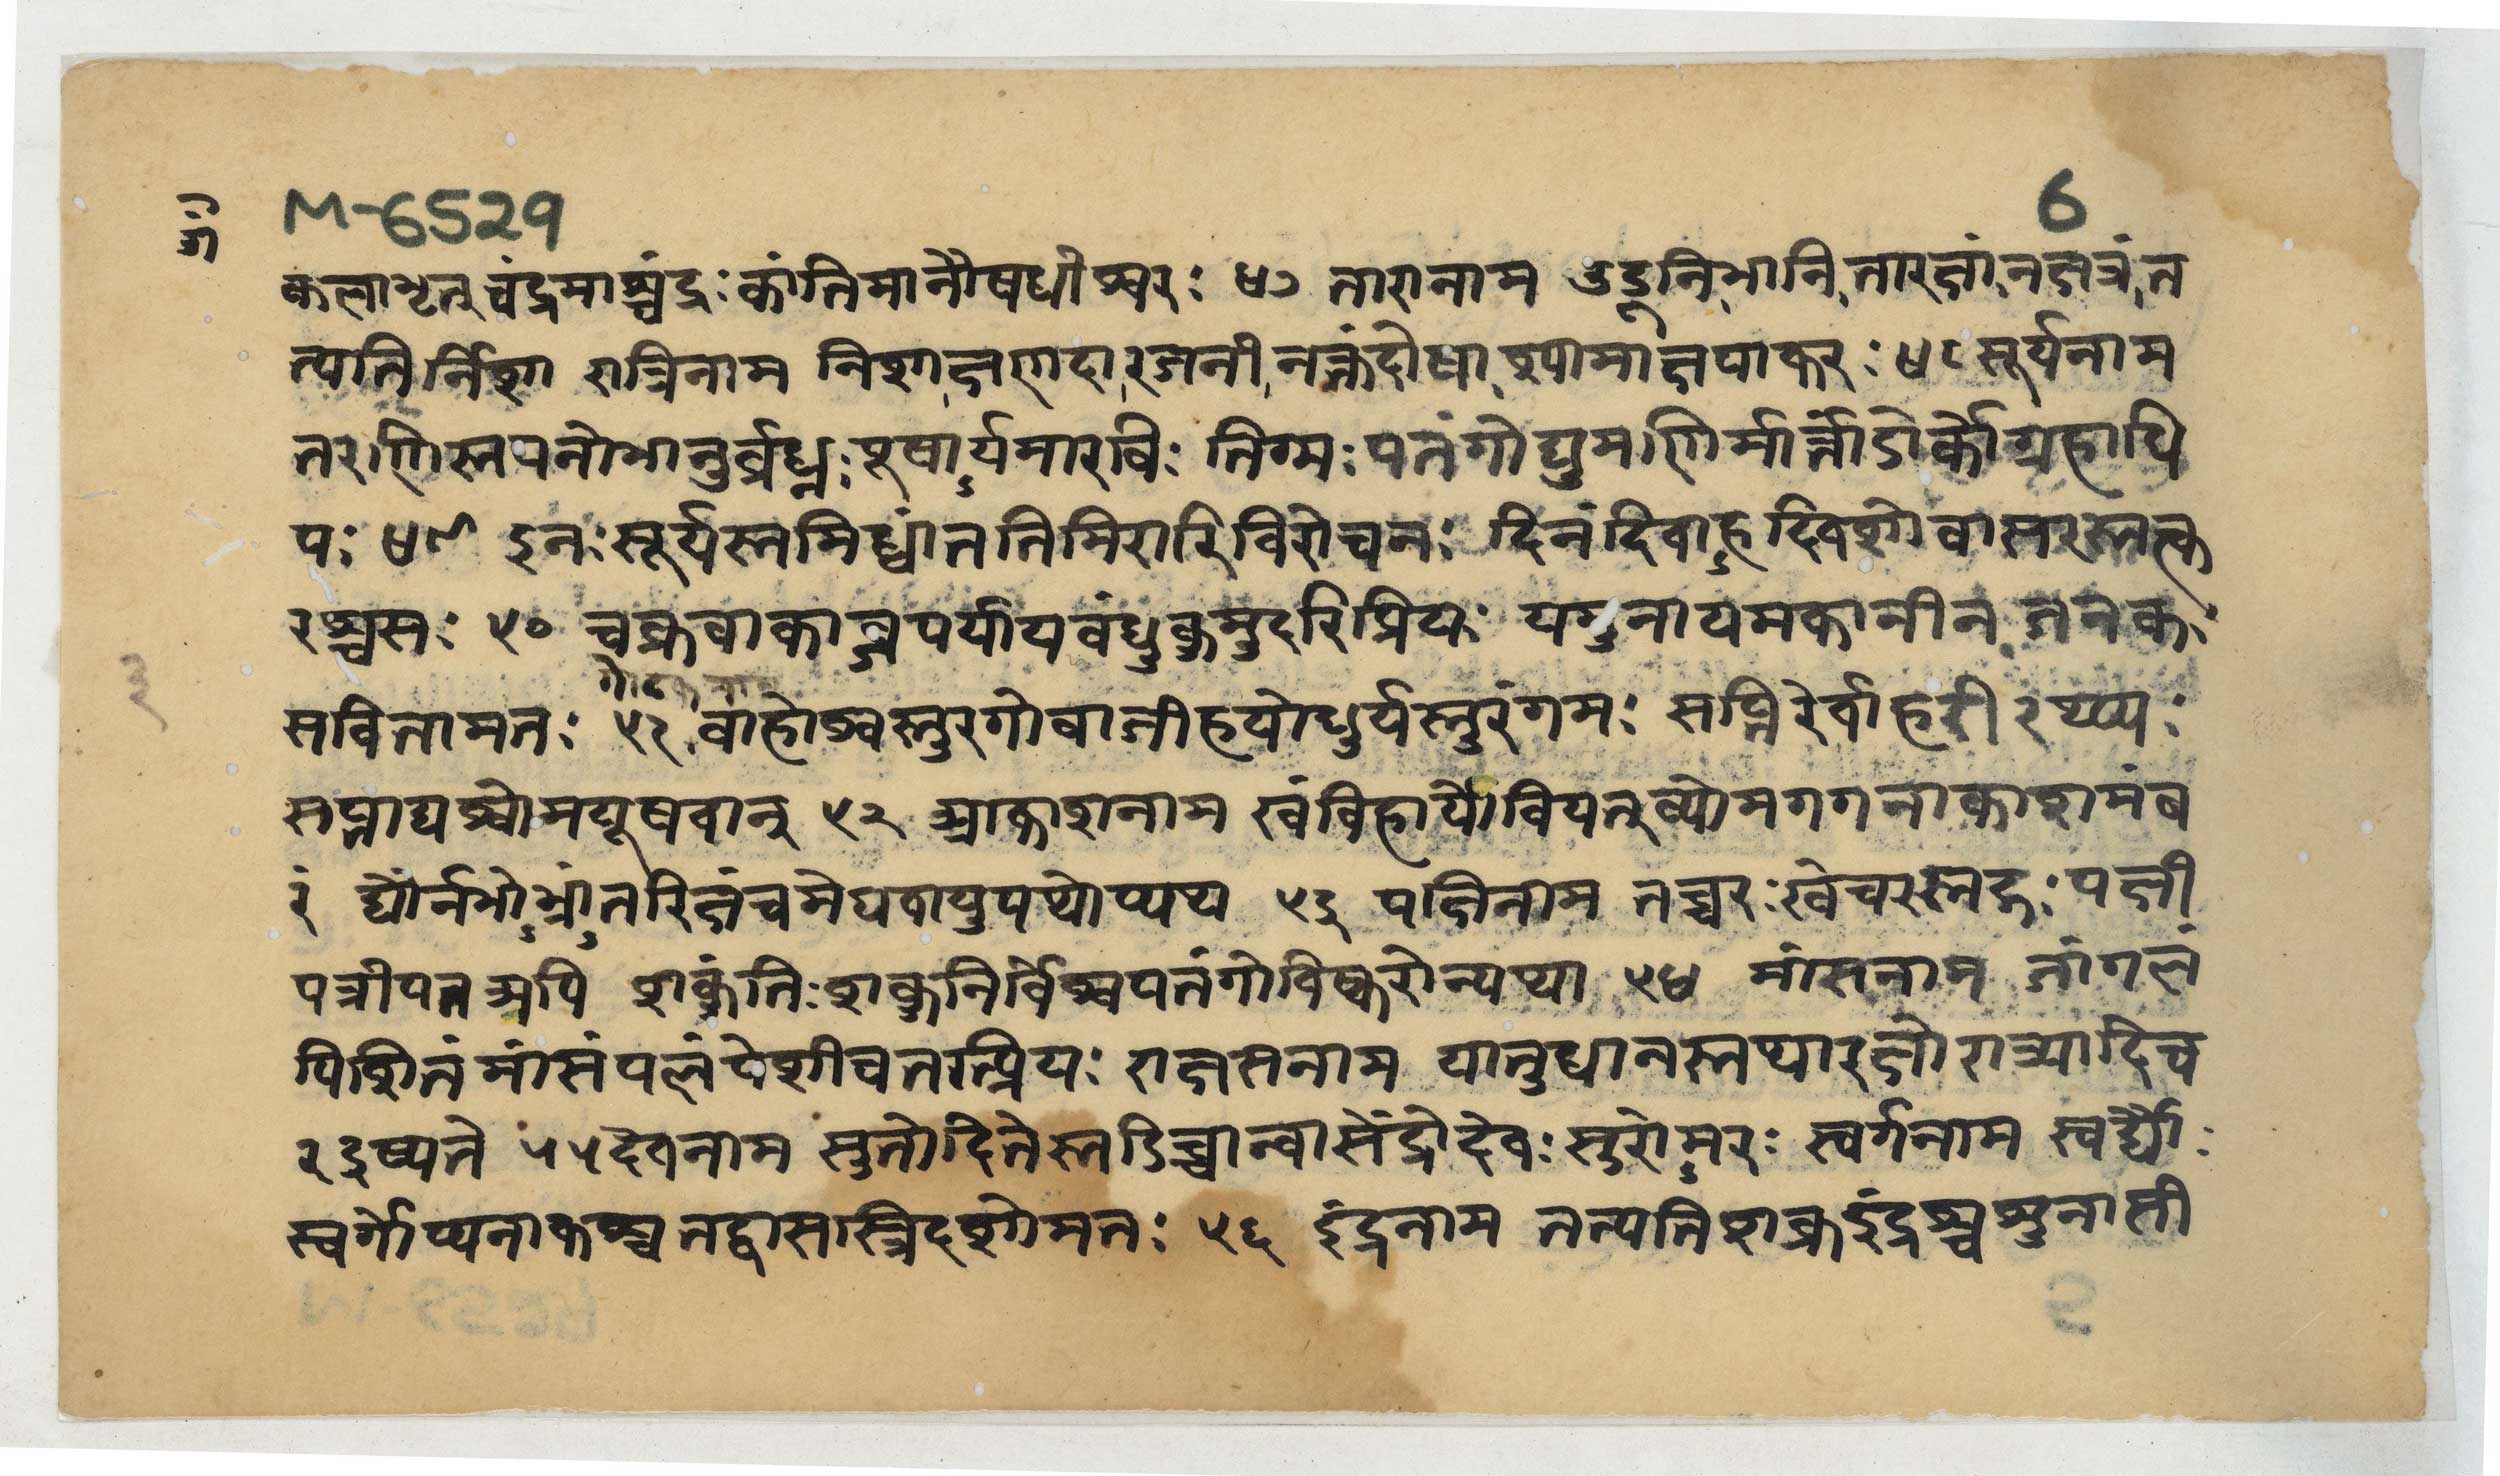 M-6529
6
कलाभृत्चंद्रमाश्चंद्रः कांतिमानौषधीश्वरः ४७ तारानाम उडूनि भानि तारर्क्षां नक्षत्रं त
त्पतिर्निशा रात्रिनाम निशा क्षणदा रजनी नक्तंदोषा श्यामाक्षपाकरः ४८ सूर्यनाम
तरणिस्तपनोभानुर्व्रध्नः पूषाऽर्यमारविः तिग्मः पतंगोद्युमणिर्मार्त्तांडोर्कोग्रहाधि
पः ४९ इनः सूर्यस्तमिध्वांत तिमिरारिविरोचनः दिनंदिवाऽहदिवशोवासरस्तत्क
रश्चसः ५० चक्रवाकाब्जपर्यायबंधुकुमुदरिप्रियः यमुनायमकानीन जनकः
सवितामतः ५१ वाहोऽश्वस्तुरगोवाजीहयोधुर्यस्तुरंगमः सप्तिरेर्वाहरीरथ्य्यः
सप्ताद्यश्वोमयूषवान् ५२ आकाशनाम खंविहार्योवियत्व्योमगगनाकाशमंब
रं द्यौर्नभोऽभ्रांऽतरिक्षंचमेघवायुपथोप्यथ ५३ पक्षिनाम तच्चरः खेचरस्तद्वः पक्षी
पत्रीपतन्नपि शकुंतिः शकुनिर्विश्वपतंगोविष्करोन्यप्या ५४ मांसनाम जांगलं
पिशितंमांसंपलंपेशीचतत्प्रियः राक्षसनाम यातुधानस्तथारक्षोरात्र्यादिच
रइष्यते ५५ देवनाम सुतोदितेस्तडिच्चान्वासेंद्रोदेवः सुरोऽमरः स्वर्गनाम स्वर्द्यौः
स्वर्गोप्यनाकश्च तद्वासस्त्रिदशोमतः ५६ इंद्रनाम तत्पतिशक्रइंद्रश्चसुनासी